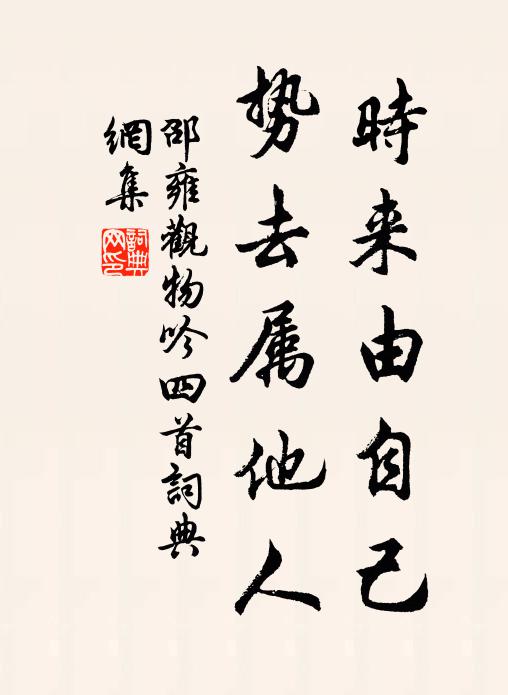 時来由自己
势去属他人
邵雍觀物吟四首詞典
網集
詞典
网印